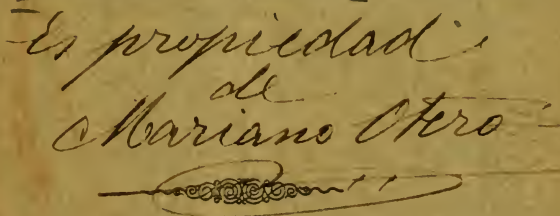 Es propiedad
de
Mariano Otero